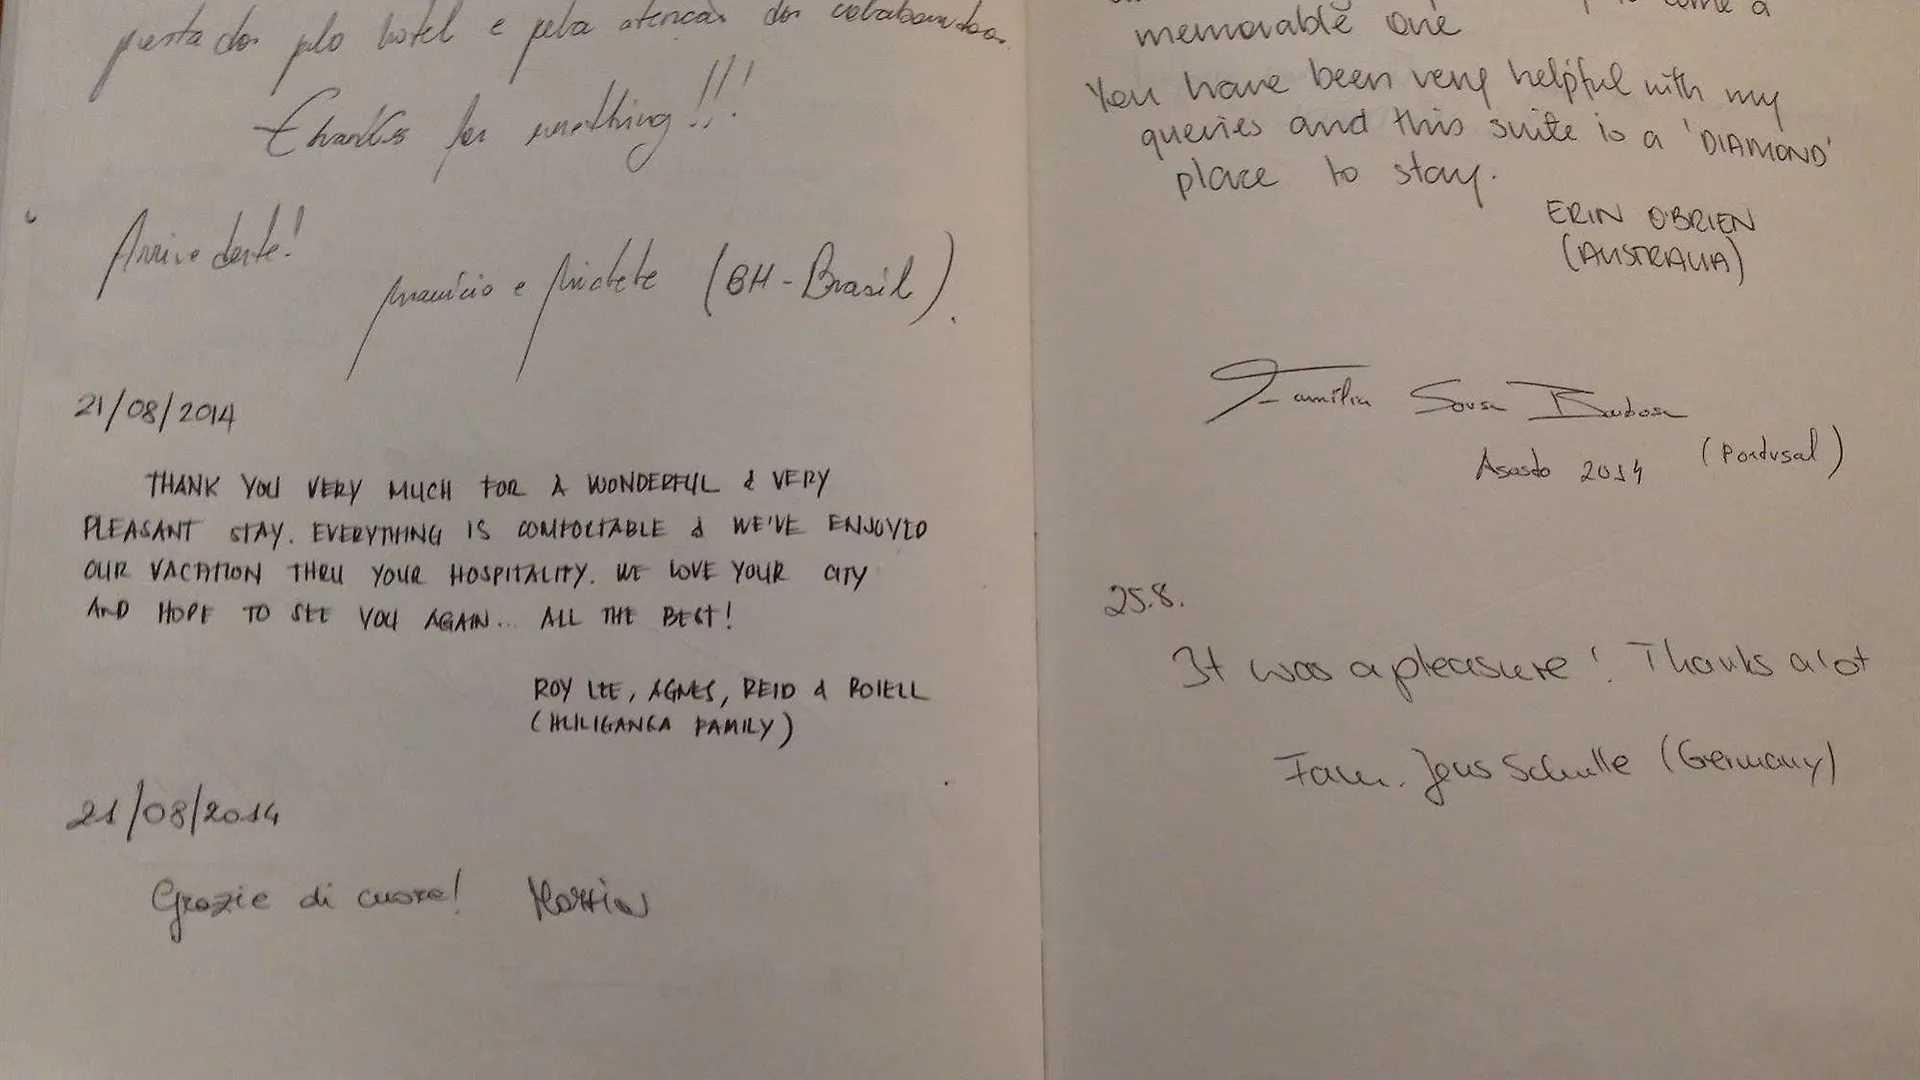 prestados pelo hotel e pela atencão dos colaboradores.
Thanks for everything!!!
Arrivederte!
Maurício e (BH-Brasil).
21/08/2014
THANK YOU VERY MUCH FOR A WONDERFUL & VERY
PLEASANT STAY. EVERYTHING IS COMFORTABLE & WE'VE ENJOYED
OUR VACATION THRU YOUR HOSPITALITY. WE LOVE YOUR CITY
AND HOPE TO SEE YOU AGAIN... ALL THE BEST!
ROY LEE, AGNES, REID &
FAMILY)
21/08/2014
Grazie di cuore!
come a
memorable one
You have been very helpful with my
queries and this suite is a 'DIAMOND'
place to stay.
ERIN O'BRIEN
(AUSTRALIA)
Família Sousa Barbosa
Agosto 2014 (Portugal)
25.8.
It was a pleasure! Thanks a lot
Fam. Jens Schulle (Germany)